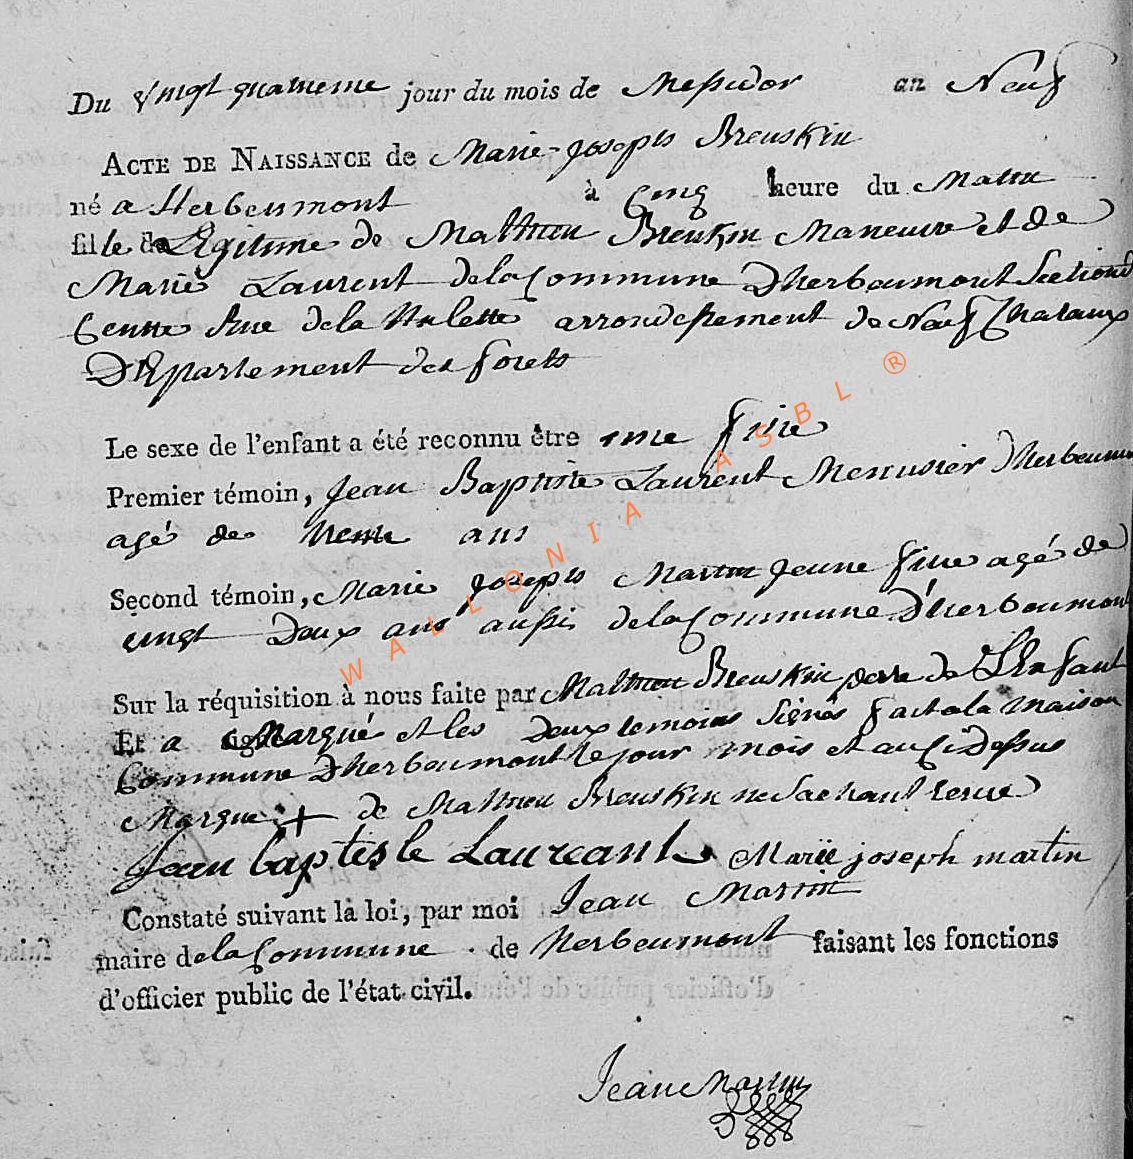 Du vingt quatrieme jour du mois de Messidor an Neuf
ACTE DE NAISSANCE de Marie-Joseph Breuskin
né a Herbeumont à Cinq heure du Matin
fille de Legitime de Mathieu Breuskin Maneuvre et de
Marie Laurent de la Commune Dherbeumont Section
rue de la arrondessement de Neuf Chataux
DEpartement des forets
Le sexe de l'enfant a été reconnu être une fille
Premier témoin, Jean Baptiste Laurent Menusier Dherbeumont
agé de trente ans
Second témoin, Marie Joseph Martin Jeune fille agé de
vingt Deux ans aussi de la Commune D'herbeumont
Sur la réquisition à nous faite par Mathieu Breuskin pere de LEnfant
Et a Marqué et les Deux temoins Signés fait a la Maison
Commune Dherbeumont le jour mois et an ci Dessus
Marque + de Mathieu Breuskin ne Sachant
Jean baptiste Laureant Marië joseph martin
Constaté suivant la loi, par moi Jean Martin
maire de la Commune de Herbeumont faisant les fonctions
d'officier public de l'état civil.
Jean Martin
WALLONIA ASBL ®